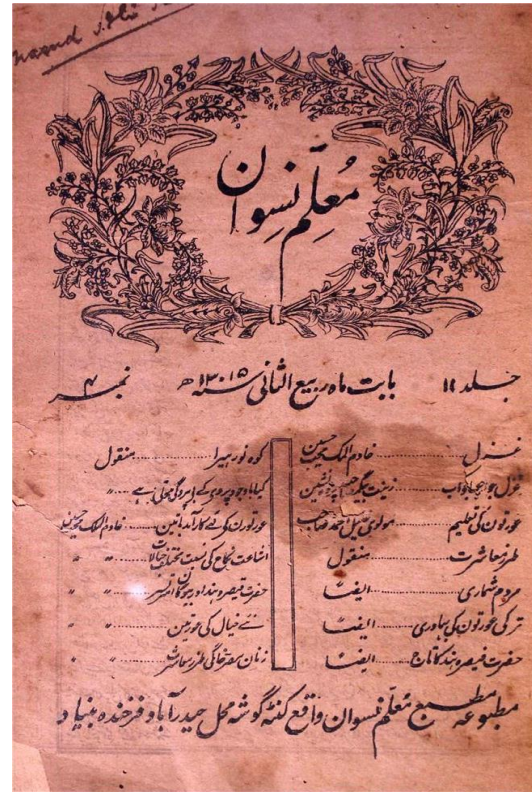 معلّم نسوان
جلد ۱۱ بابت ماہ ربیع الثانی سنہ ۱۳۰۱۵ھ نمبر ۴
غزل ........ خادم الملک محب حسین
غزل ........ زینت بیگم
عورتوں کی تعلیم ........ مولوی احمد صاحب
طرز معاشرت ........ منقول
مردم شماری ........ ایضاً
ترکی عورتوں کی بہادری ........ ایضاً
حضرت قیصرہ ہند کا تاج ........ ایضاً
کوہ نور ہیرا ........ منقول
کیا باوجود پیروی کے بے پردگی ہوتی ہے ........ 〃
عورتوں کے لئے کارآمد باتیں ........ خادم الملک محب حسین
اشاعت نکاح کی نسبت مختلف خیالات ........ 〃 〃
حضرت قیصرہ ہند اور بیوگان ........ 〃 〃
نئے خیال کی عورتیں ........ 〃 〃
زنان کی طرز معاشرت ........ 〃 〃
مطبوعہ مطبع معلّم نسوان واقع کٹہ گوشہ محل حیدرآباد فرخندہ بنیاد